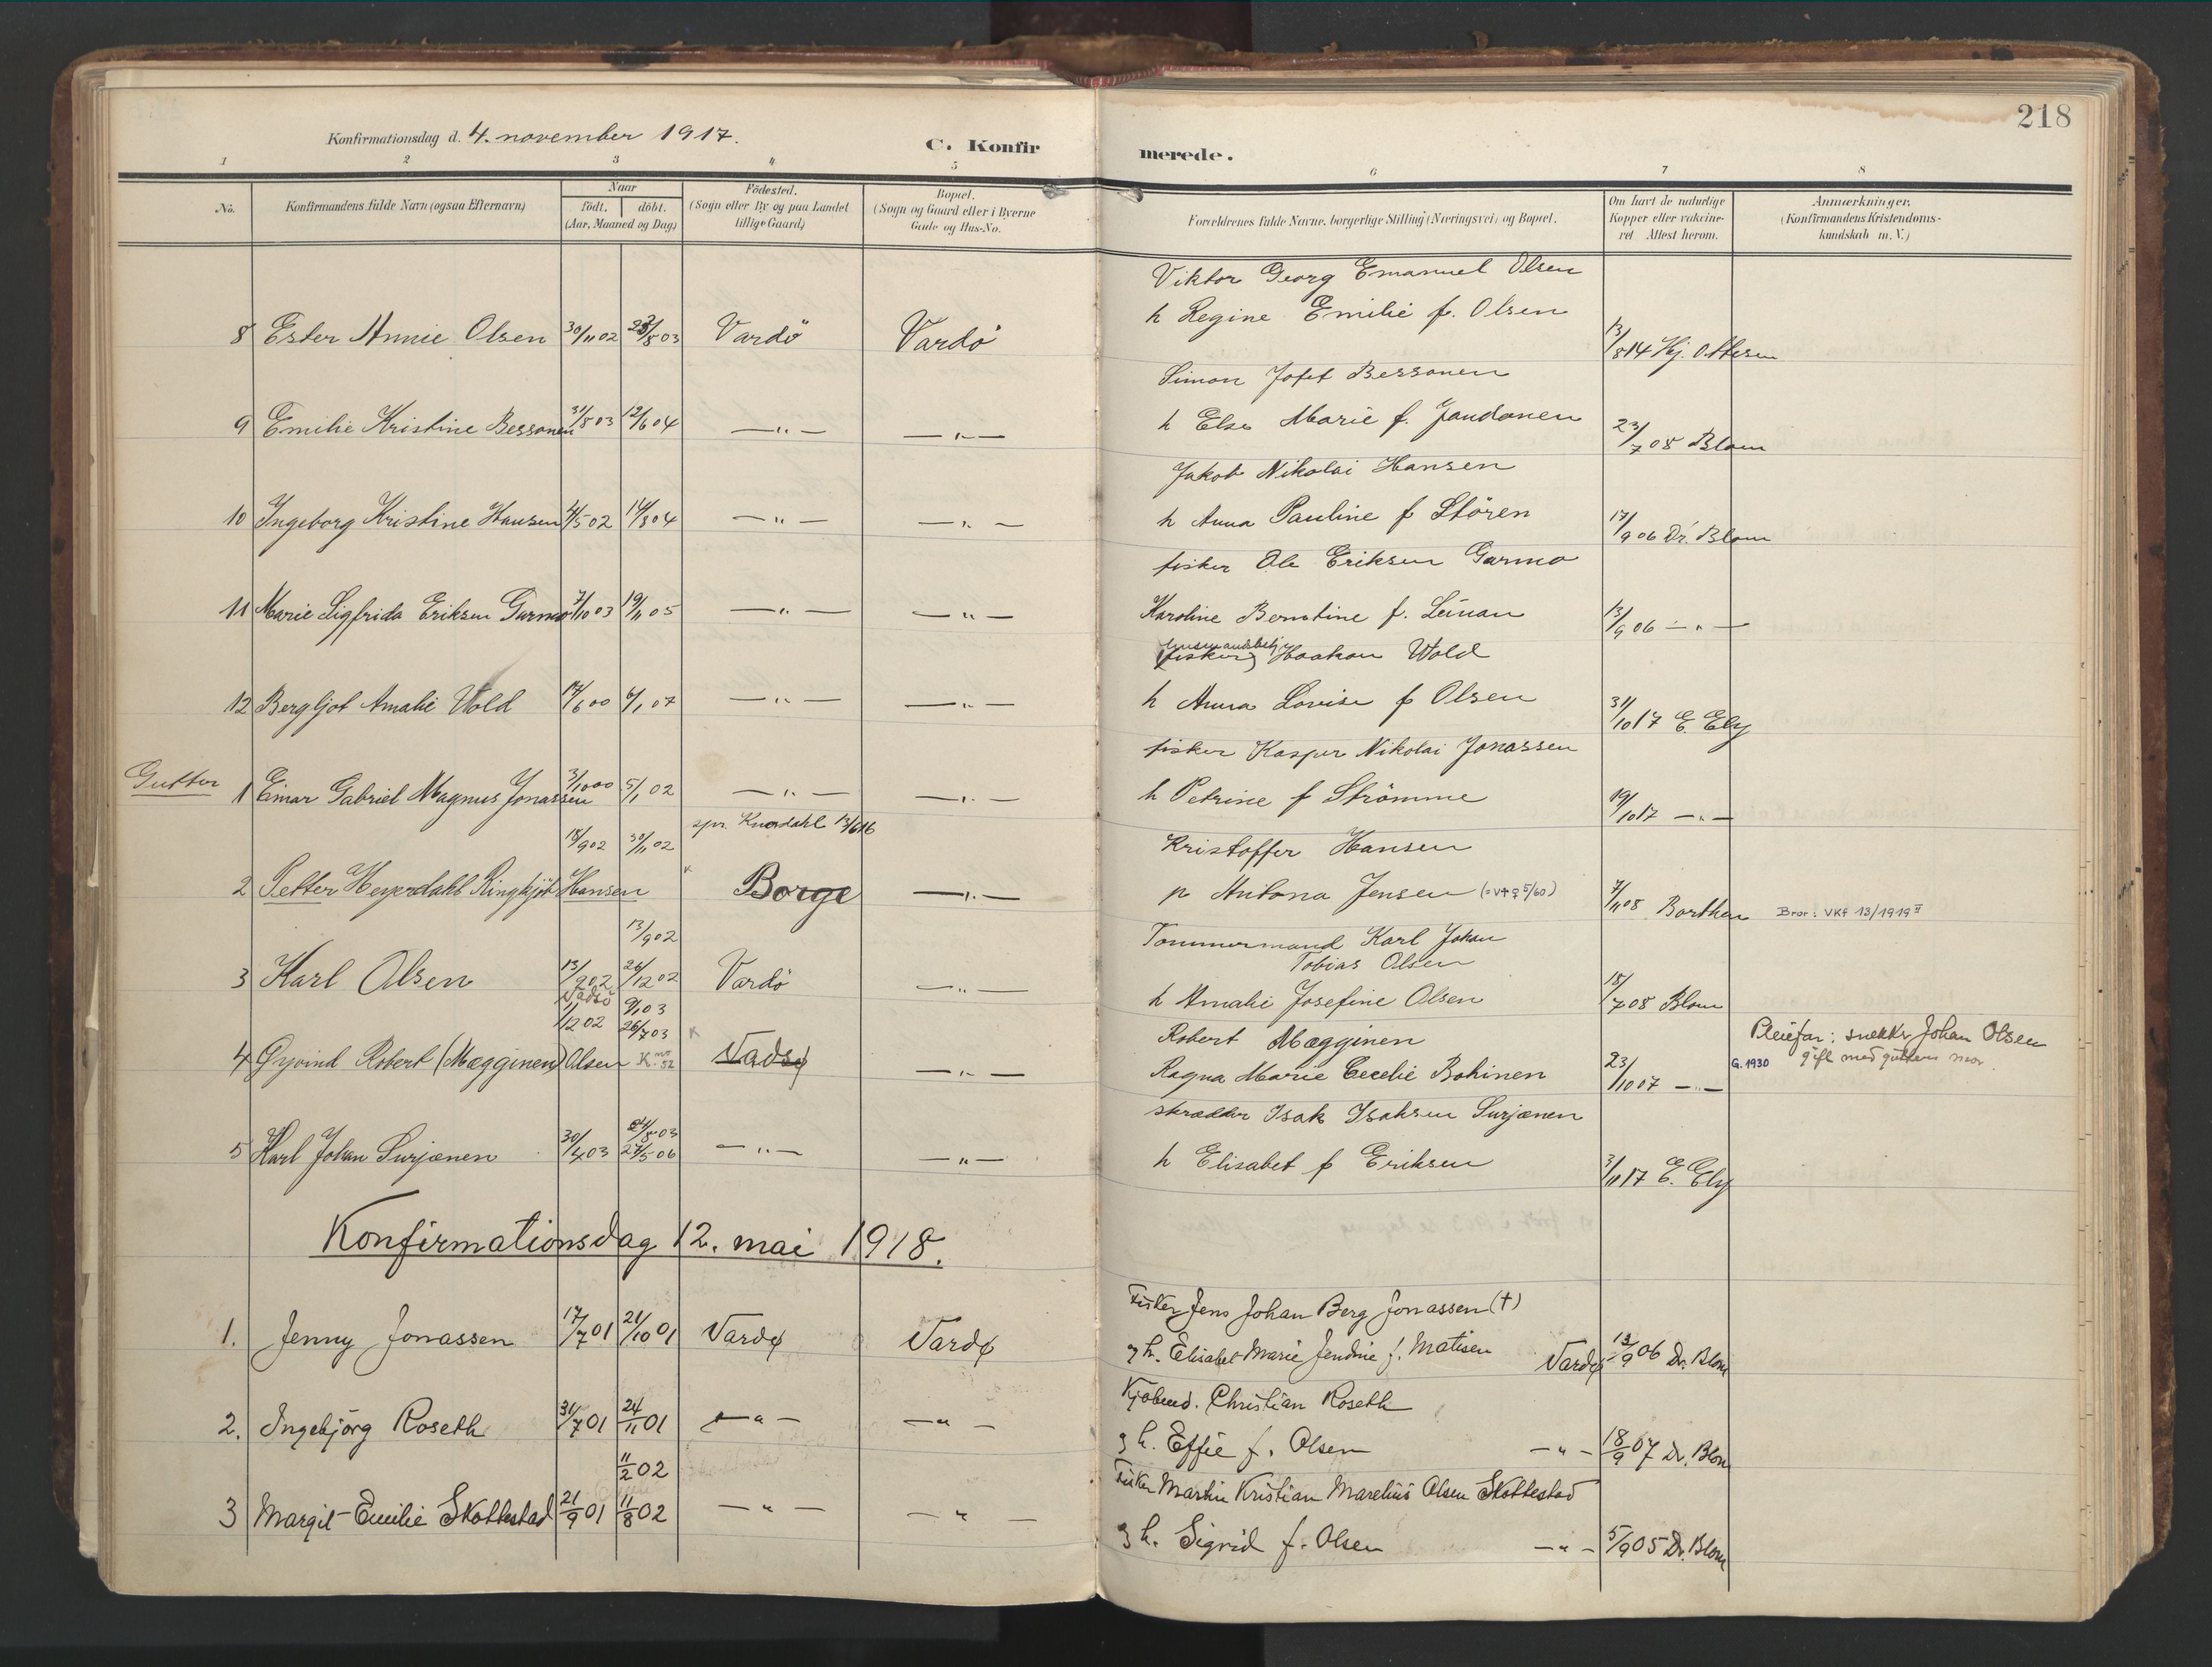 218
Konfirmationsdag d. 4. november 1917.
C. Konfirmerede.
1 2 3 4 5 6 7 8
No. Konfirmandens fulde Navn (ogsaa Efternavn) Naar födt. döbt. (Aar, Maaned og Dag) Födested. (Sogn eller By og paa Landet tillige Gaard) Bopæl. (Sogn og Gaard eller i Byerne Gade og Hus-No. Forældrenes fulde Navne, borgerlige Stilling (Næringsvei) og Bopæl. Om havt de naturlige Kopper eller vakcineret Attest herom. Anmærkninger. (Konfirmandens Kristendomskundskab m. V.)
Viktor Georg Emanuel Olsen
8 Ester Annie Olsen 30/11 02 /8 03 Vardö Vardö h Regine Emilie f. Olsen 13/8 14 Hj. Ottesen
Simon Jofet Bessonen
9 Emilie Kristine Bessonen 31/8 03 12/6 04 —"— —"— h Else Marie f. Jandonen 23/7 08 Blom
Jakob Nikolai Hansen
10 Ingeborg Kristine Hansen 4/5 02 14/8 04 —"— —"— h Anna Pauline f Stören 17/9 06 Dr. Blom
fisker Ole Eriksen Garmo
11 Marie Sigfrida Eriksen Garmo 7/10 03 19/11 05 —"— —"— Karoline Berntine f. Leinan 13/9 06 —"—
(fisker) Haakon Wold
12 Bergljot Amalie Wold 17/6 00 6/1 07 —"— —"— h Anna Lovise f Olsen 31/10 17 E. Ely
fisker Kasper Nikolai Jonassen
Gutter 1 Einar Gabriel Magnus Jonassen 3/10 00 5/1 02 —"— —"— h Petrine f Strömme 19/10 17 —"—
18/9 02 30/11 02 13/6 16
Kristoffer Hansen
2 Petter Heyerdahl Ringkjöb Hansen Borge —"— p Antona Jensen (=V+♀ 5/60) 7/11 08 Borthen Bror: VKf 13/1919 II
13/9 02
Tommermand Karl Johan
Tobias Olsen
3 Karl Olsen 13/9 02 26/12 02 Vardö —"— h Amalie Josefine Olsen 18/7 08 Blom
Vadsö
11/12 02 9/1 03
26/7 03
Robert Mægginen Pleiefar: snekker Johan Olsen
4 Øyvind Robert (Mægginen) Olsen Vadsø —"— Ragna Marie Cecelie Bohinen 23/10 07 —"— G. 1930 gift med guttens mor.
skrædder Isak Isaksen Surjænen
24/8 03
5 Karl Johan Surjænen 30/4 03 27/5 06 —"— —"— h Elisabet f Eriksen 3/11 17 E. Ely
Konfirmationsdag 12. mai 1918.
Fisker Jens Johan Berg Jonassen (†)
1. Jenny Jonassen 17/7 01 21/10 01 Vardø Vardø g h. Elisabet Marie Jendine f. Matisen Vardø 13/9 06 Dr. Blom
Kjöbmd. Christian Roseth
2. Ingebjörg Roseth 31/7 01 24/11 01 —"— —"— g h. Effie f. Olsen —"— 18/9 07 Dr. Blom
11/2 02
Fisker Martin Kristian Marelius Olsen Skottestad
3 Margit-Emilie Skottestad 21/9 01 11/8 02 —"— —"— g h. Sigrid f. Olsen —"— 5/9 05 Dr. Blom